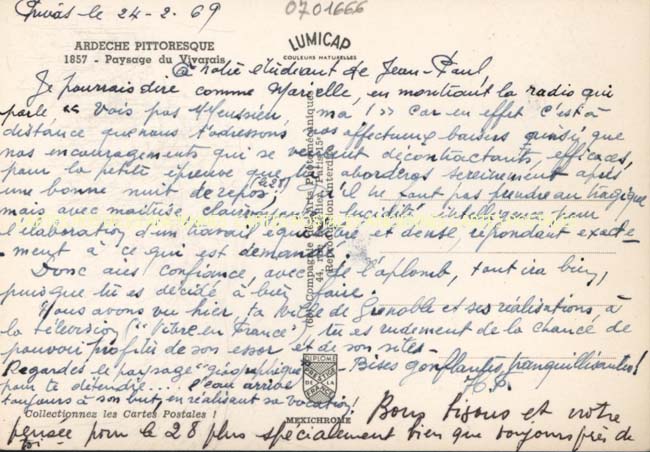 Privas le 24-2.69
0701666
ARDECHE PITTORESQUE
1857 - Paysage du Vivarais
LUMICAP
COULEURS NATURELLES
à notre étudiant de Jean-Paul,
Je pourrais dire comme Marcelle, en montrant la radio qui
parle " Vois pas Monssieu, ma !" Car en effet c'est à
distance que nous t'adressons nos affectueux baisers ainsi que
nos encouragements qui se veulent décontractants, efficaces,
pour la petite épreuve que tu aborderas sereinement après
une bonne nuit de repos, (le 28) qu'il ne faut pas prendre au tragique
mais avec maîtrise, clairvoyance, lucidité, intelligence pour
l'élaboration d'un travail équilibré et dense, répondant exacte-
ment à ce qui est demandé.
Donc aies confiance, avec de l'aplomb, tout ira bien,
puisque tu es décidé à bien faire.
Nous avons vu hier, ta ville de Grenoble et ses réalisations, à
la télévision ("Vivre en France"), tu as rudement de la chance de
pouvoir profiter de son essor et de son site -
Regardes le paysage "géographique" - Bises gonflantes, tranquillisantes !
pour te détendre.... L'eau arrive
toujours à son but, en réalisant sa vocation !
DIPLOME
PRESTIGE
DE LA
FRANCE
MEXICHROME
Collectionnez les Cartes Postales !
Bons bisous et notre
pensée pour le 28 plus spécialement bien que toujours près de
toi -